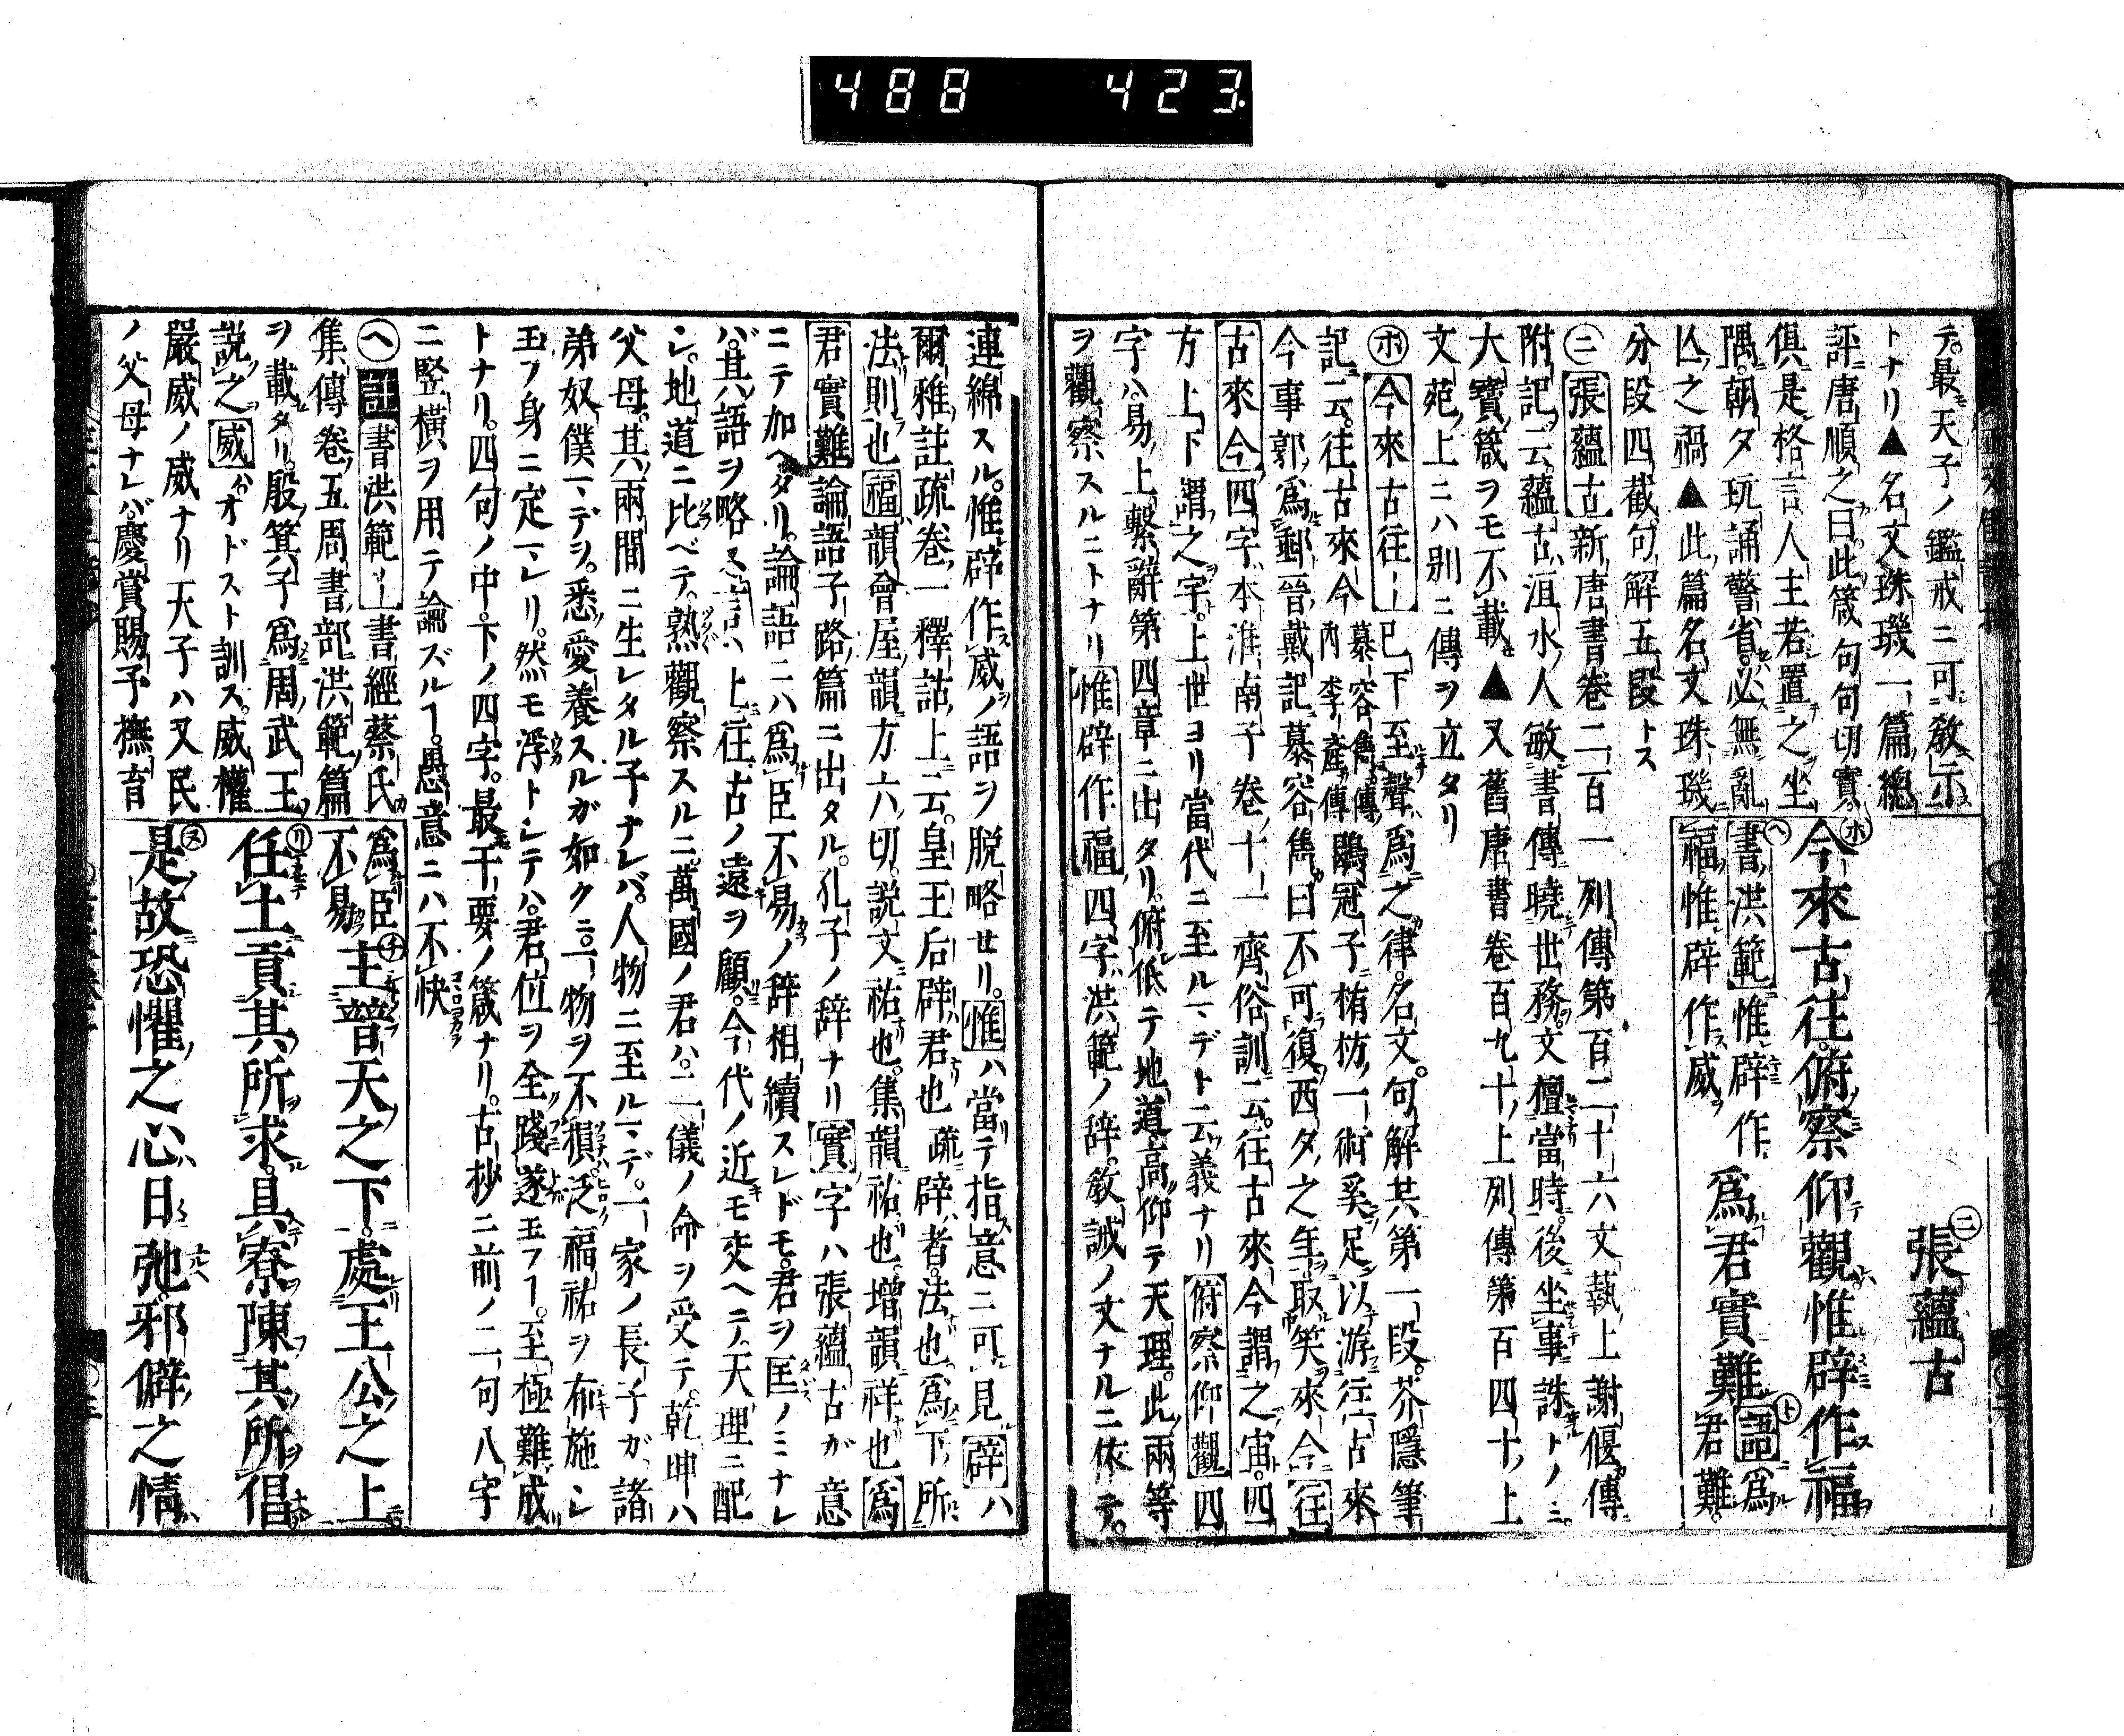 488 423
テ。最天子ノ鑑戒ニ可敎示
トナリ▲名文珠璣一篇總
評唐順之曰此箴句句切實
俱是格言人主若置之坐
隅。朝夕玩誦警省。必無亂
亾之禍▲此篇名文珠璣
分段四截句解五段トス
張蘊古
今來古往。俯察仰觀惟辟作福
書洪範惟辟作
福惟辟作威
爲君實難
語爲
君難。
㊁張蘊古新唐書卷二百一列傳第百二十六文藝上謝偃傳
附記云。蘊古洹水人敏書傳曉世務。文擅當時。後坐事誅トノミ。
大寶箴ヲモ不載▲又舊唐書卷百九十上列傳第百四十上
文苑上ニハ別ニ傳ヲ立タリ
㋭今來古往ー已下至聲爲之律。名文。句解共第一段。芥隱筆
記云。往古來今慕容雋傳內李產傳鶡冠子栫枋一術奚足以游往古來
今事郭爲郵晉戴記慕容雋曰不可復西夕之年取笑來今往
古來今四字本淮南子卷十一齊俗訓云。往古來今謂之宙。四
方上下謂之宇。上世ヨリ當代ニ至ルマデト云義ナリ俯察仰觀四
字ハ易上繫辭第四章ニ出タリ。俯低テ地道高仰テ天理。此兩等
ヲ觀察スルニトナリ惟辟作福四字洪範ノ辞。敎誡ノ文ナルニ依テ。
連綿スル。惟辟作威ノ語ヲ脱略セリ。惟ハ當テ指意ニ可見辟ハ
爾雅註疏卷一釋詁上云。皇王后辟君也疏辟者。法也。爲下所
法則也福韻會屋韻方六切。説文祐也。集韻祐也。增韻祥也爲
君實難論語子路篇ニ出タル。孔子ノ辞ナリ實字ハ張蘊古ガ意
ニテ加ヘタリ。論語ニハ爲臣不易ノ辞相續スレドモ。君ヲ匡ノミナレ
バ。其語ヲ略ス言ハ上往古ノ遠ヲ顧。今代ノ近モ交ヘニ天理ニ配
シ。地道ニ比ベテ。熟觀察スルニ。萬國ノ君ハ。二儀ノ命ヲ受テ。乾坤ハ
父母。其兩間ニ生レタル子ナレバ。人物ニ至ルマデ。一家ノ長子ガ諸
弟奴僕マデヲ。悉愛養スルガ如クニ。一物ヲ不損。泛福祐ヲ布施シ
玉フ身ニ定マレリ。然モ浮トシテハ。君位ヲ全踐遂玉フ。至極難成
トナリ。四句ノ中。下ノ四字。最干要ノ箴ナリ。古抄ニ前ノ二句八字
ニ竪橫ヲ用テ論ズル。愚意ニハ不快
㋬註書洪範ー書經蔡氏
集傳卷五周書部洪範篇
ヲ載タリ。殷箕子爲周武王
説之威ハオドスト訓ス。威權
嚴威ノ威ナリ天子ハ又民
ノ父母ナレバ。慶賞賜予撫育
爲臣
不易
主普天之下。處王公之上
任土貢其所求。具寮陳其所倡
是故恐懼之心日弛邪僻之情